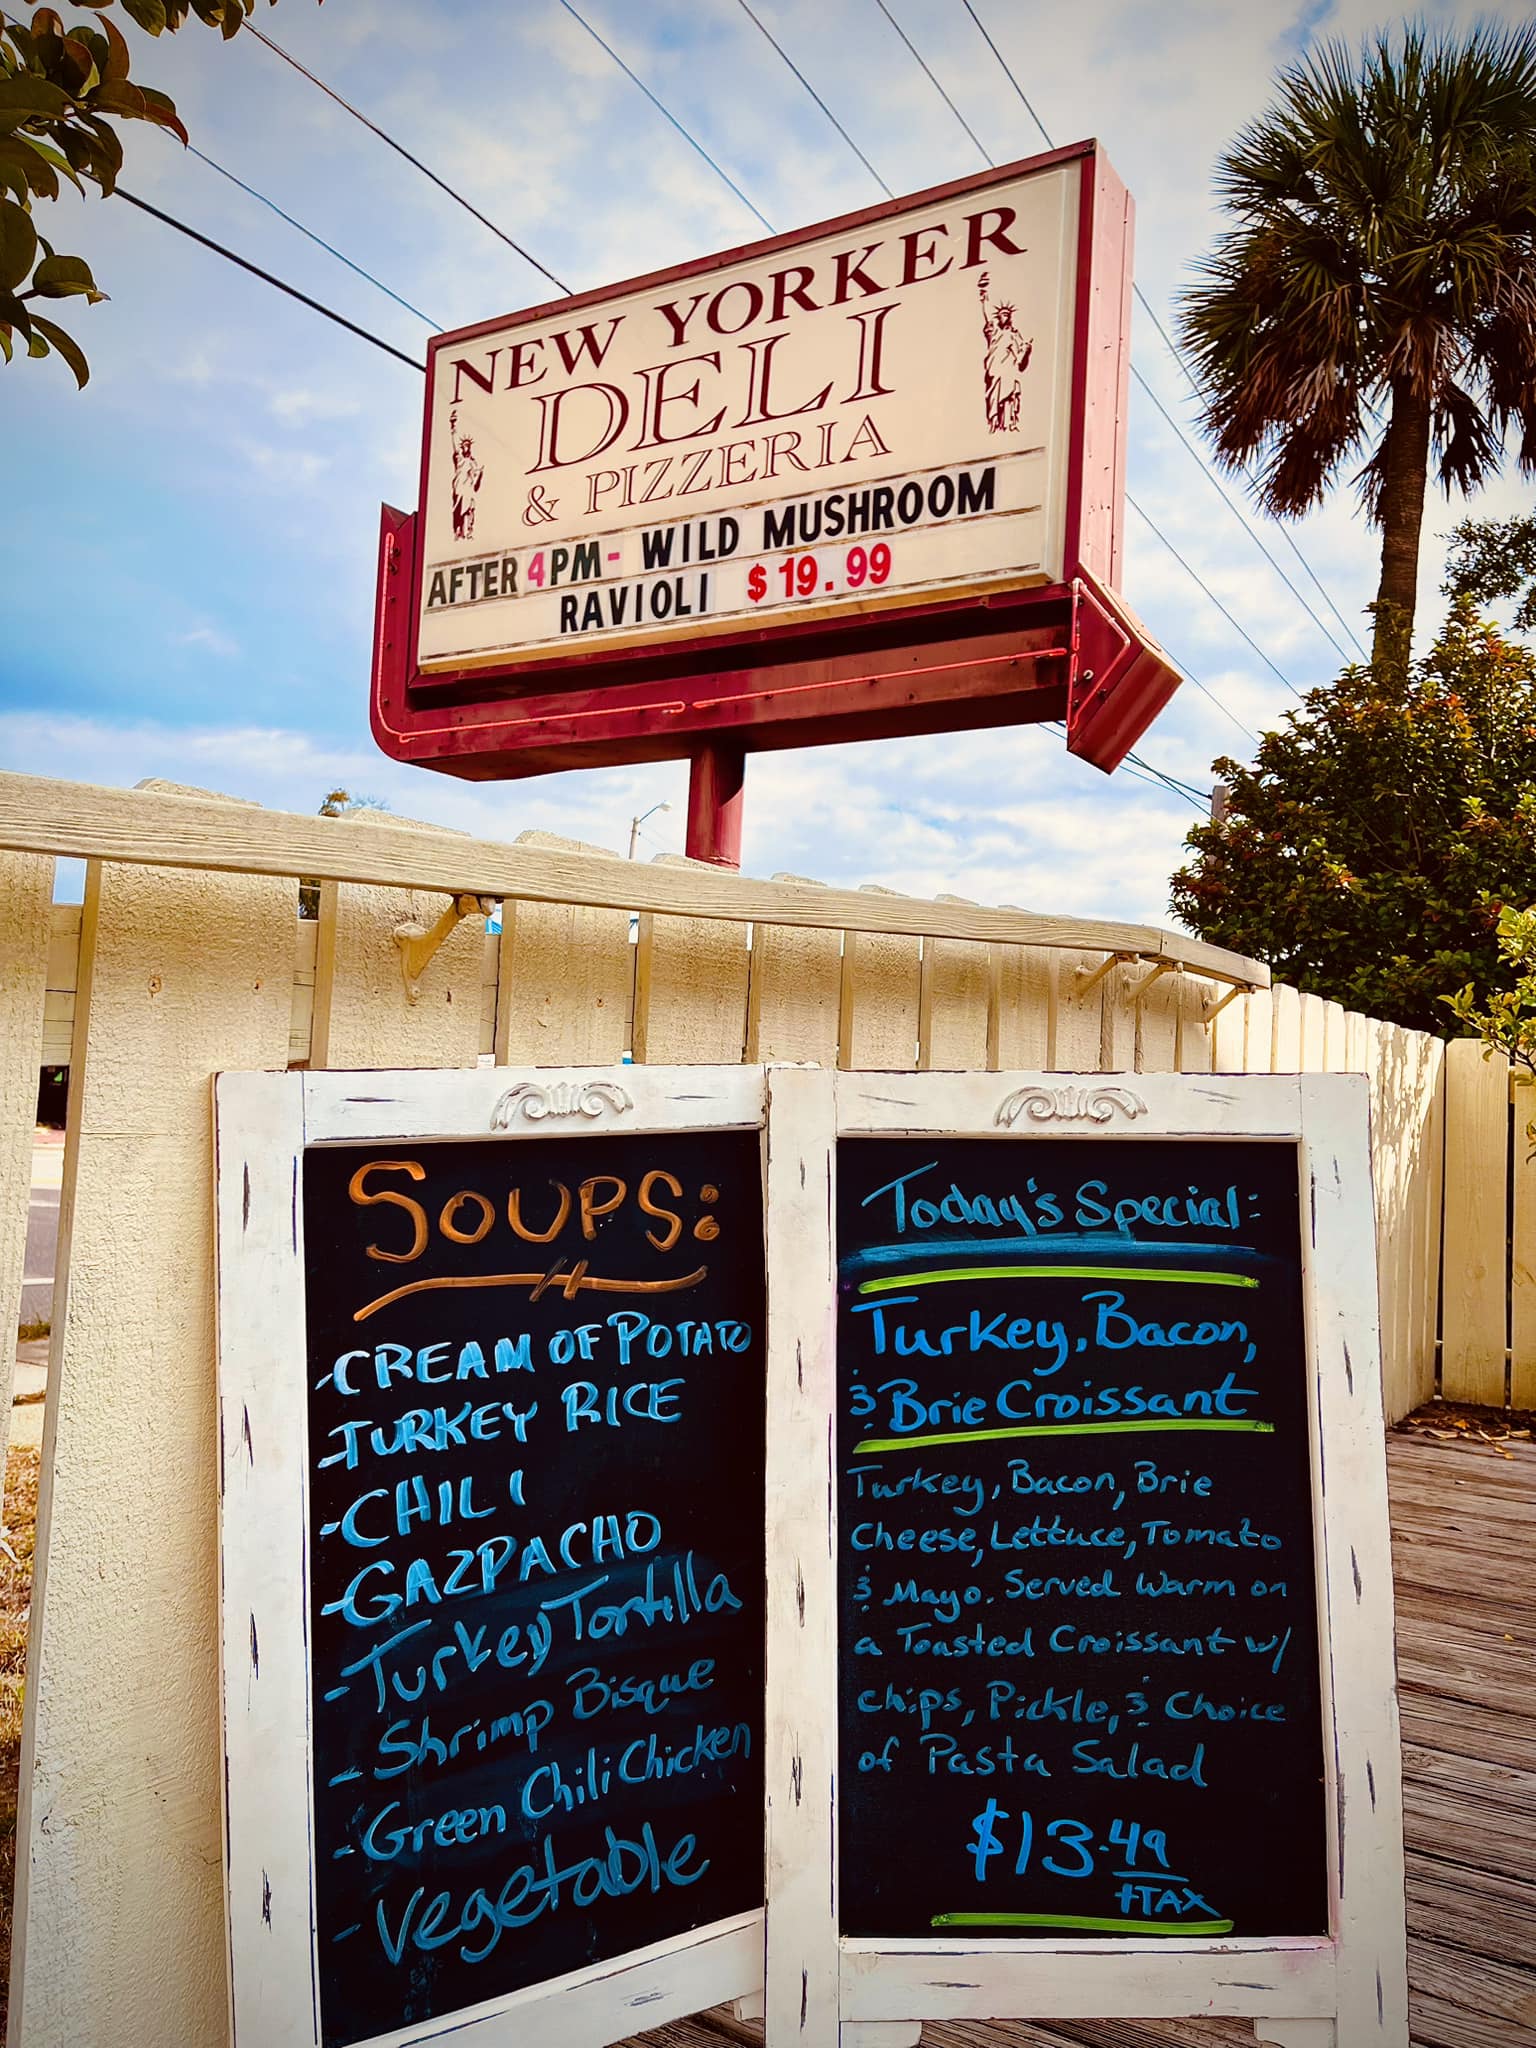 NEW YORKER
DELI
& PIZZERIA
AFTER 4PM- WILD MUSHROOM
RAVIOLI $19.99
SOUPS:
-CREAM OF POTATO
-TURKEY RICE
-CHILI
-GAZPACHO
-Turkey Tortilla
-Shrimp Bisque
-Green Chili Chicken
-Vegetable
Today's Special:
Turkey, Bacon,
& Brie Croissant
Turkey, Bacon, Brie
Cheese, Lettuce, Tomato
& Mayo. Served Warm on
a Toasted Croissant w/
Chips, Pickle, & Choice
of Pasta Salad
$13.49
+TAX